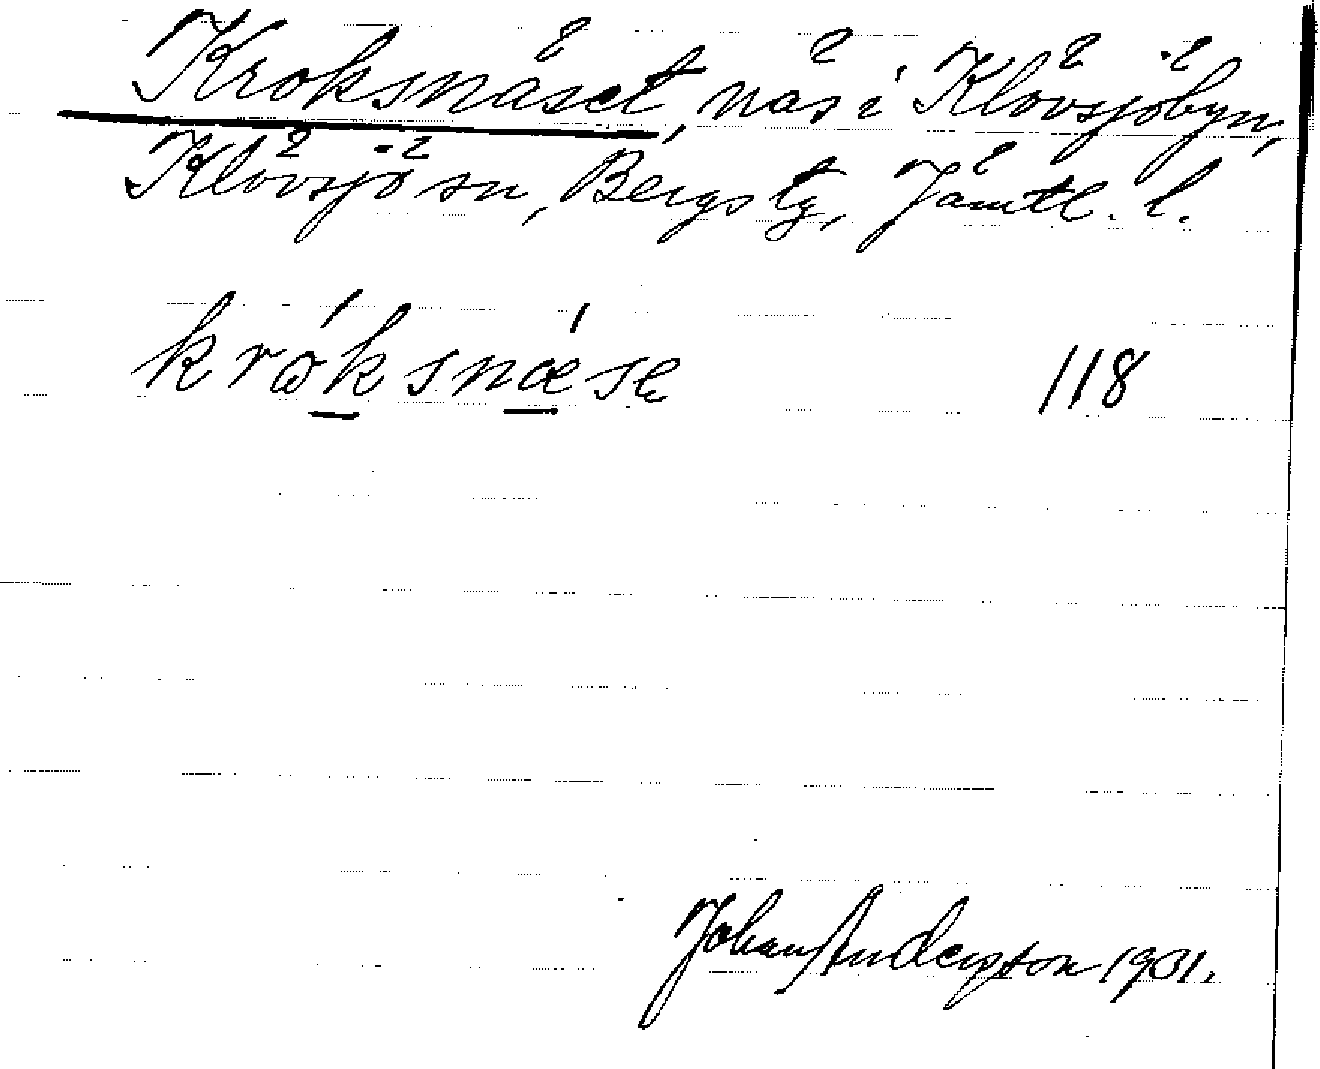 Kroksnäset, näs i Klövsjöbyn,
Klövsjö sn, Bergs tg, Jämtl. l.
krø̀ksnæ̀sę 118
Johan Anderson 1931.